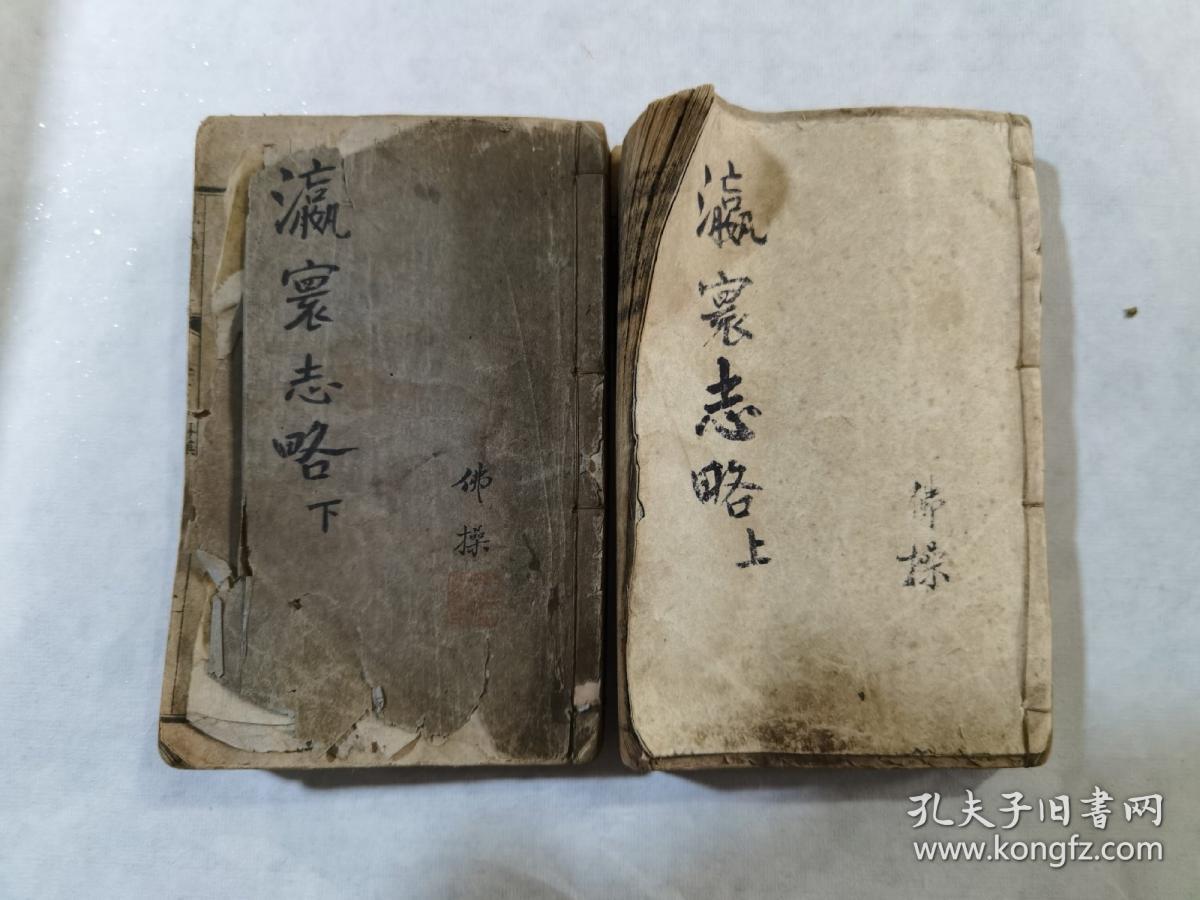 瀛寰志略上
佛操
瀛寰志略下
佛操
孔夫子旧书网
www.kongfz.com